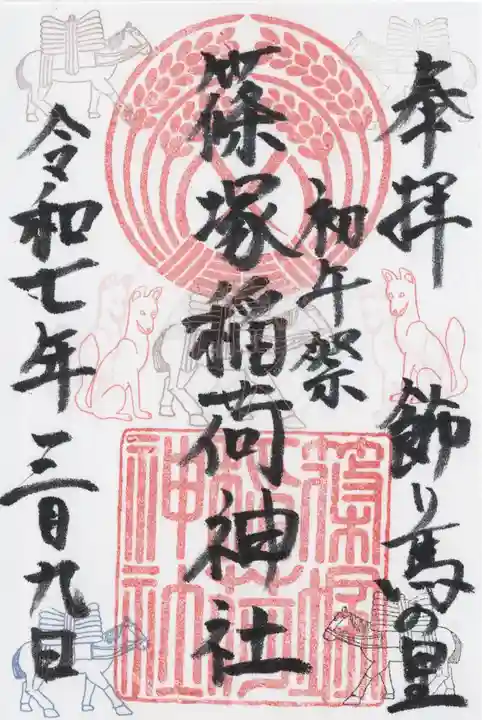 奉拝
飾り馬の里
初午祭
篠塚稲荷神社
令和七年三月九日
篠塚
稲荷
神社